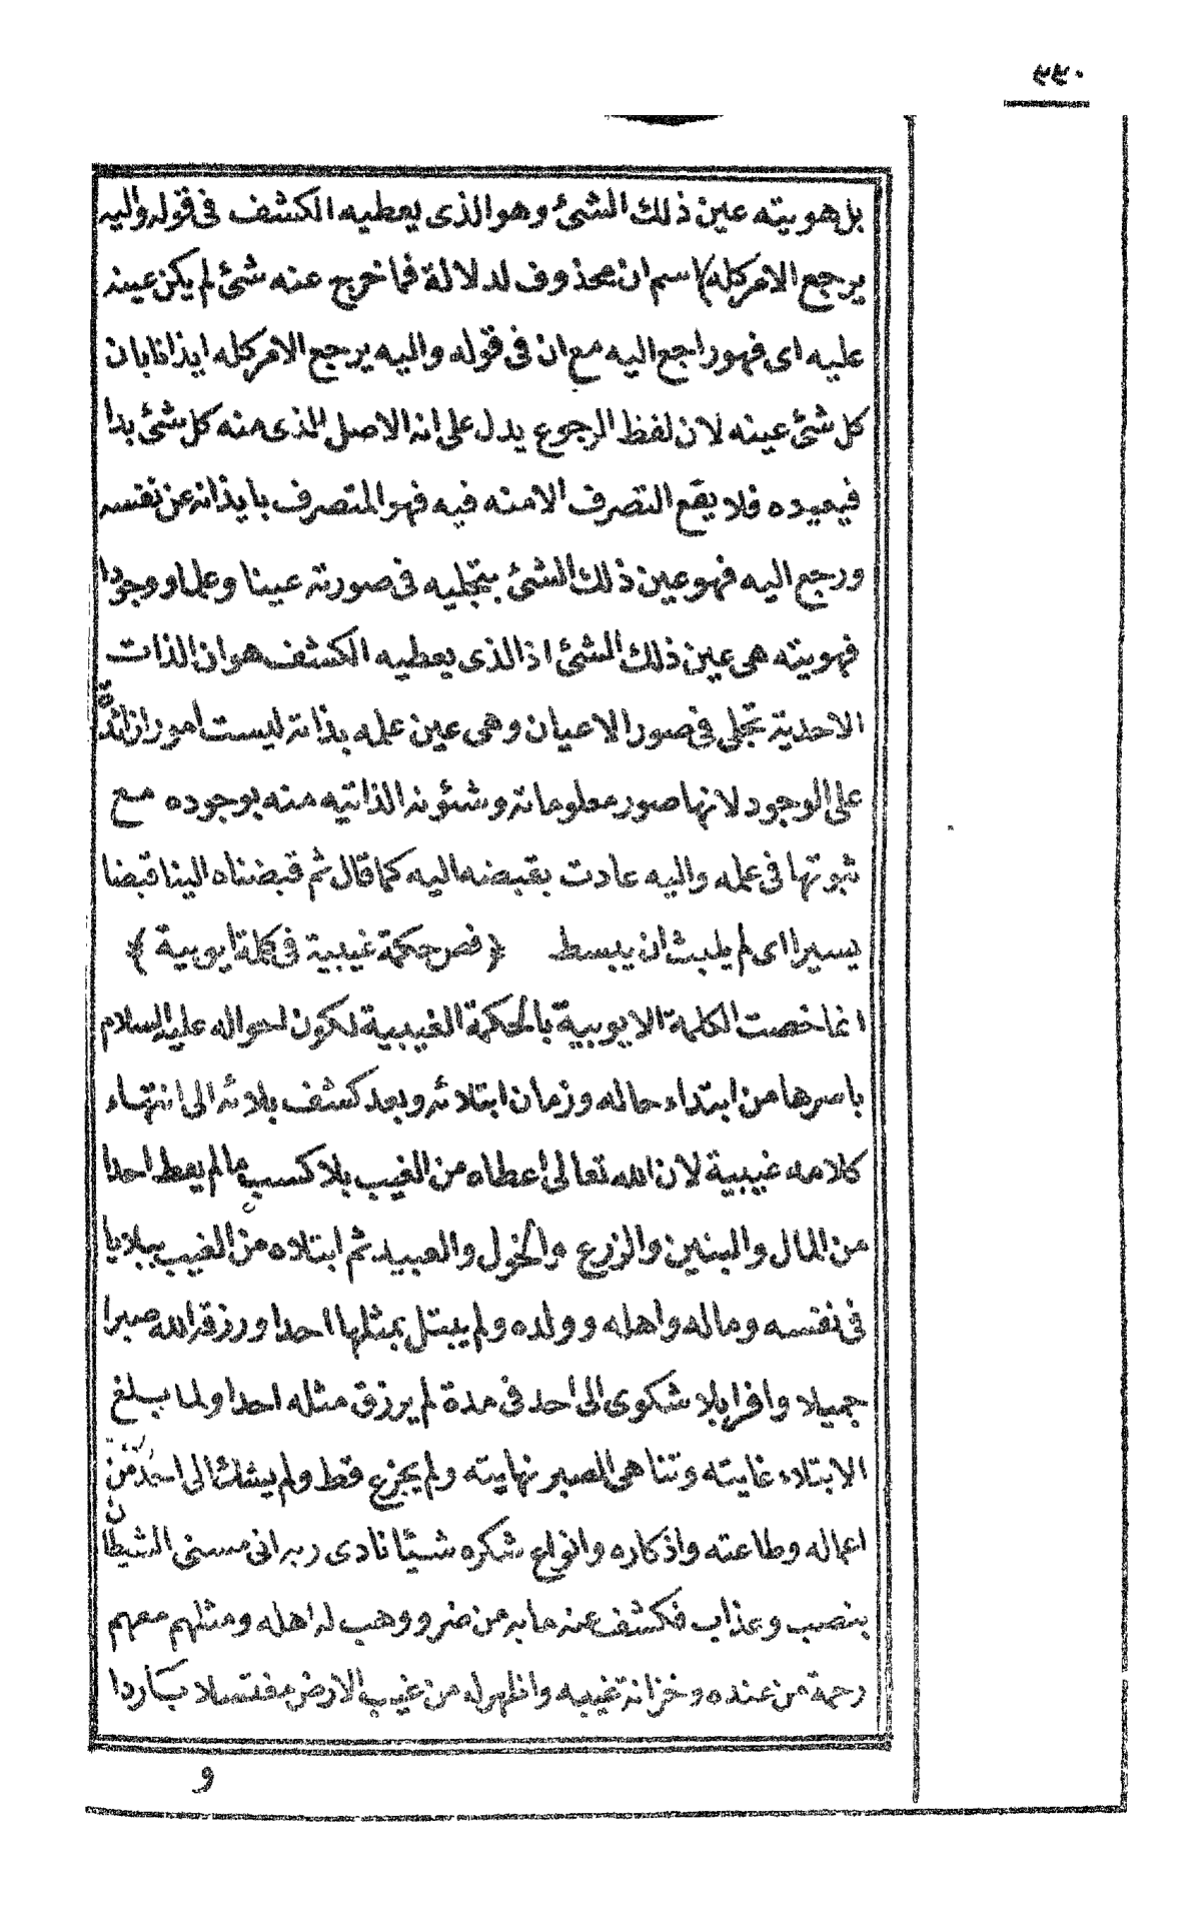 ٢٢٠
بل هويته عين ذلك الشئ وهو الذى يعطيه الكشف فى قوله واليه
يرجع الامر كله) اسم ان محذوف لدلالة فما خرج عنه شئ لم يكن عينه
عليه اى فهو راجع اليه مع ان فى قوله واليه يرجع الامر كله ايذانا بان
كل شئ عينه لان لفظ الرجوع يدل على انه الاصل الذى منه كل شئ بدا
فيعيده فلا يقع التصرف الا منه فيه فهو المتصرف بايذانه عن نفسه
ورجع اليه فهو عين ذلك الشئ بتجليه فى صورته عينا وعلما ووجودا
فهويته هى عين ذلك الشئ اذ الذى يعطيه الكشف هو ان الذات
الاحدية تجلى فى صور الاعيان وهى عين علمه بذاته ليست امورا زائدة
على الوجود لانها صور معلوماته وشئونه الذاتيه منه بوجوده مع
ثبوتها فى علمه واليه عادت بقبضه اليه كما قال ثم قبضناه الينا قبضا
يسيرا اى لم يلبث ان يبسط ﴿ فص حكمة غيبية فى كلمة ايوبية ﴾
انما خصت الكلمة الايوبية بالحكمة الغيبية لكون احواله عليه السلام
باسرها من ابتداء حاله وزمان ابتلائه وبعد كشف بلائه الى انتهاء
كلامه غيبية لان الله تعالى اعطاه من الغيب بلا كسب ما لم يعط احدا
من المال والبنين والزرع والخول والعبيد ثم ابتلاه من الغيب ببلايا
فى نفسه وماله واهله وولده ولم يبتل بمثلها احدا ورزقه الله صبرا
جميلا وافرا بلا شكوى الى احد فى مدة لم يرزق مثله احدا ولما بلغ
الابتلاء غايته وتناهى الصبر نهايته ولم يجزع قط ولم يشك الى احد من
اعماله وطاعته واذكاره وانواع شكره شيئا نادى ربه انى مسنى الشيطان
بنصب وعذاب فكشف عنه ما به من ضر ووهب له اهله ومثلهم معهم
رحمة من عنده وخزانة غيبه واظهر له من غيب الارض مغتسلا باردا
و